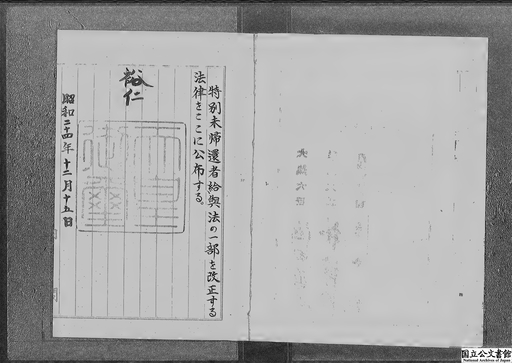 特別未帰還者給與法の一部を改正する
法律をここに公布する。
裕仁
天皇
御璽
昭和二十四年十二月十五日
国立公文書館
National Archives of Japan